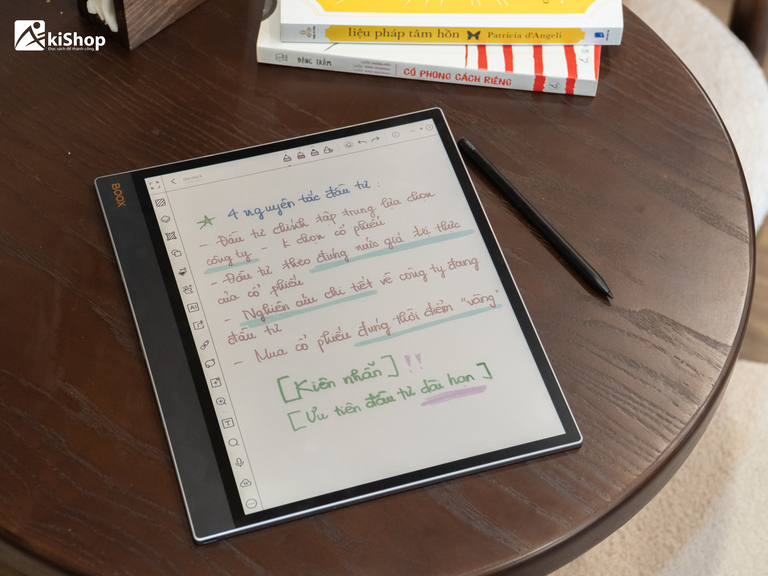 AkiShop
Đọc sách để thành công
liệu pháp tâm hồn Patricia d'Angeli
ĐĂNG TRÂM CÓ PHONG CÁCH RIÊNG
BOOX
4 nguyên tắc đầu tư :
- Đầu tư chính tập trung lựa chọn
công ty - k chọn cổ phiếu
- Đầu tư theo đúng mức giá trị thực
của cổ phiếu
- Nghiên cứu chi tiết về công ty đang
đầu tư
- Mua cổ phiếu đúng thời điểm "vàng"
[Kiên nhẫn] !!
[Ưu tiên đầu tư dài hạn]